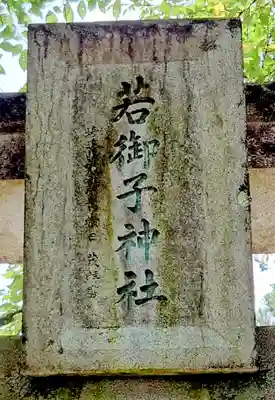 若御子神社